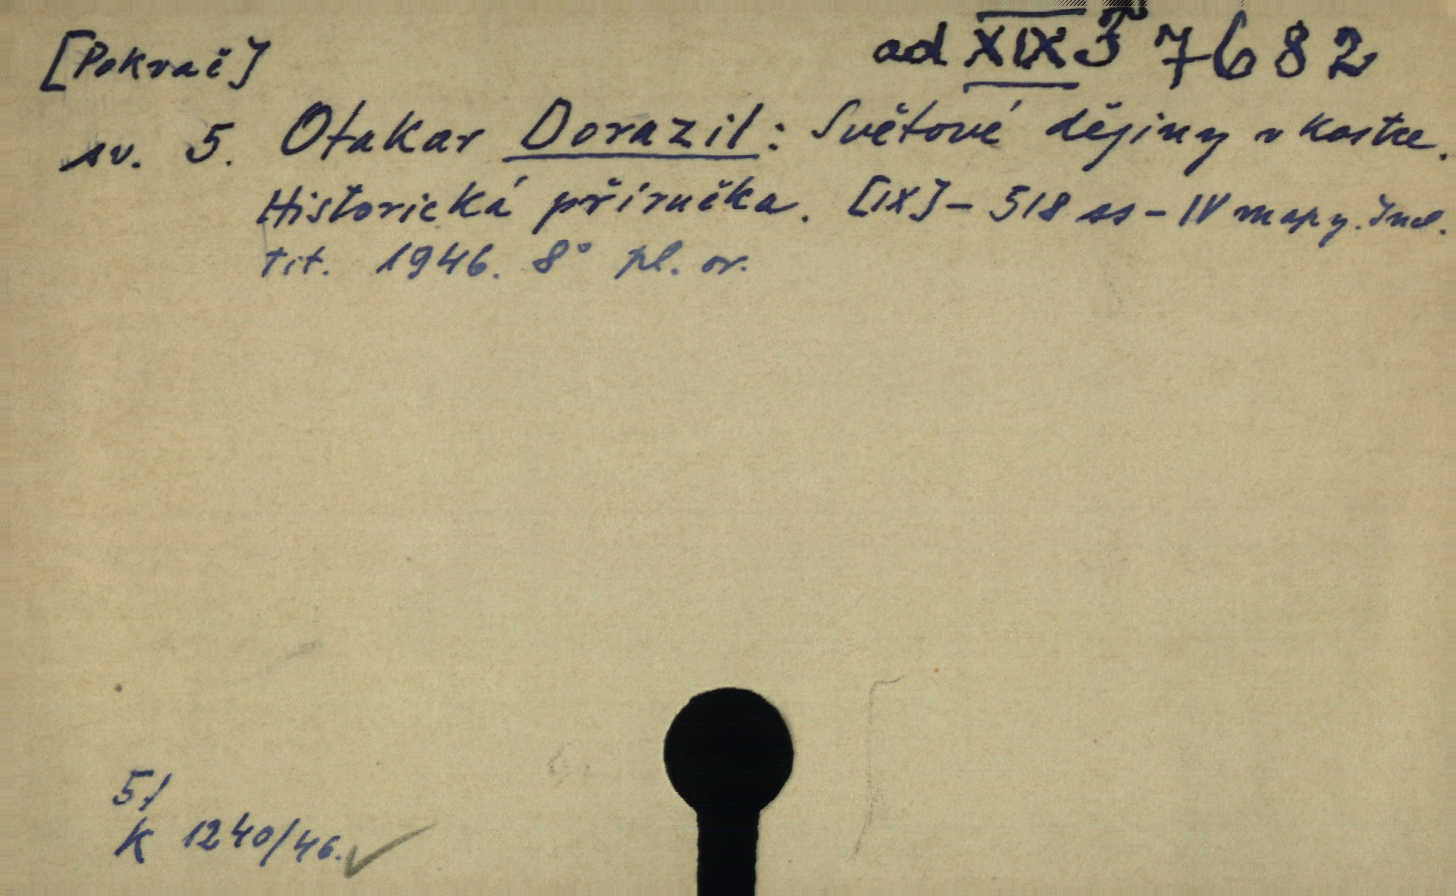 [Pokrač] ad XIX J 7682
sv. 5. Otakar Dorazil: Světové dějiny v kostce.
Historická příručka. [IX] - 518 ss - IV mapy. Ind.
tit. 1946. 8° pl. or.
5/
K 1240/46.